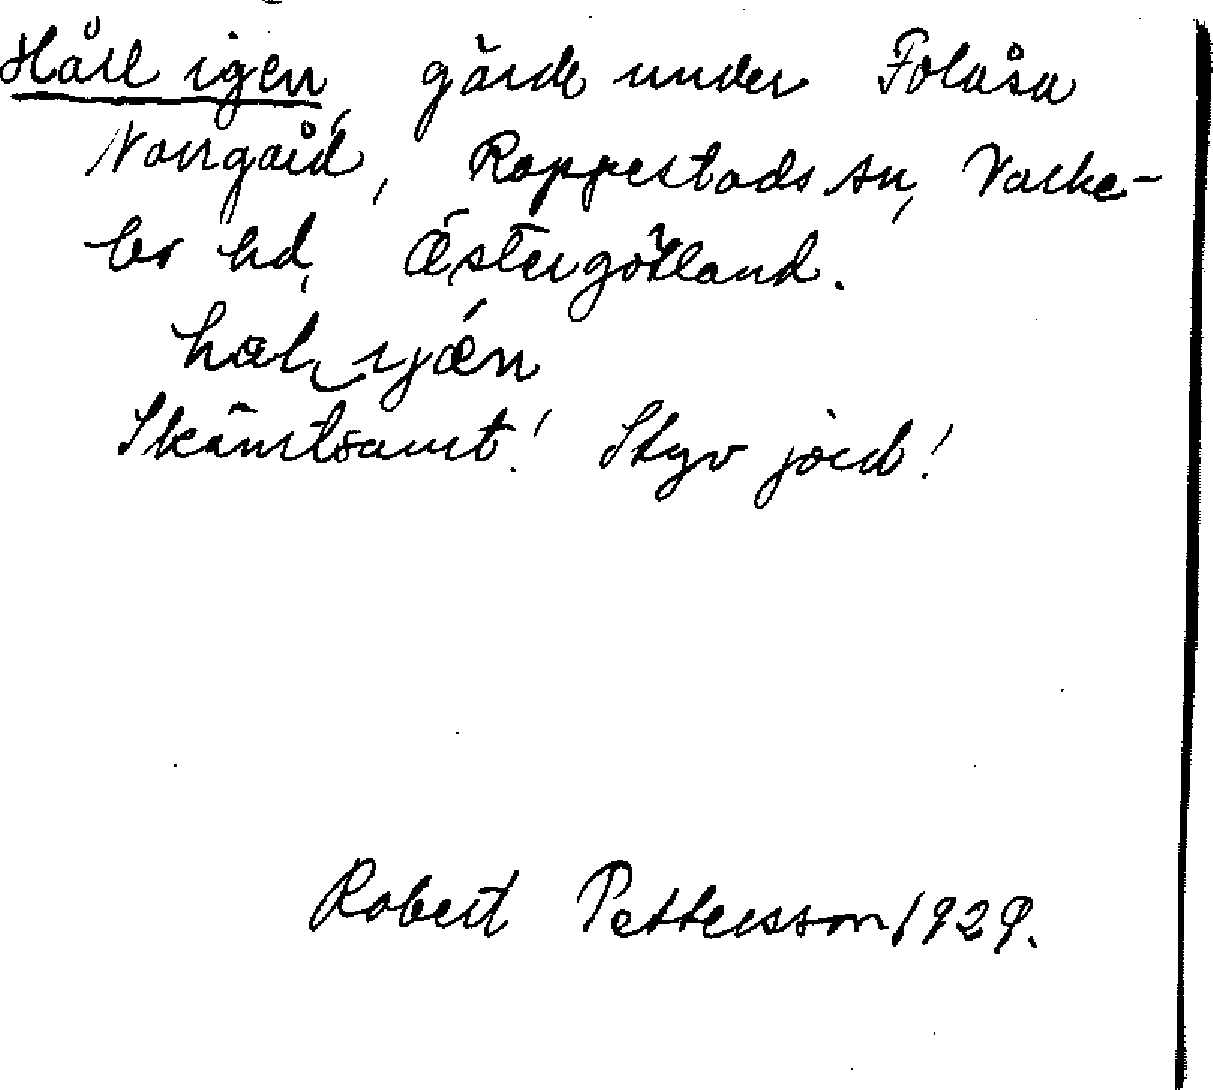 Håll igen, gärde under Folåsa
Norrgård, Rappestads sn, Valke-
bo hd, Östergötland.
hål ijän
Skämtsamt! Styv jord!
Robert Pettersson 1929.